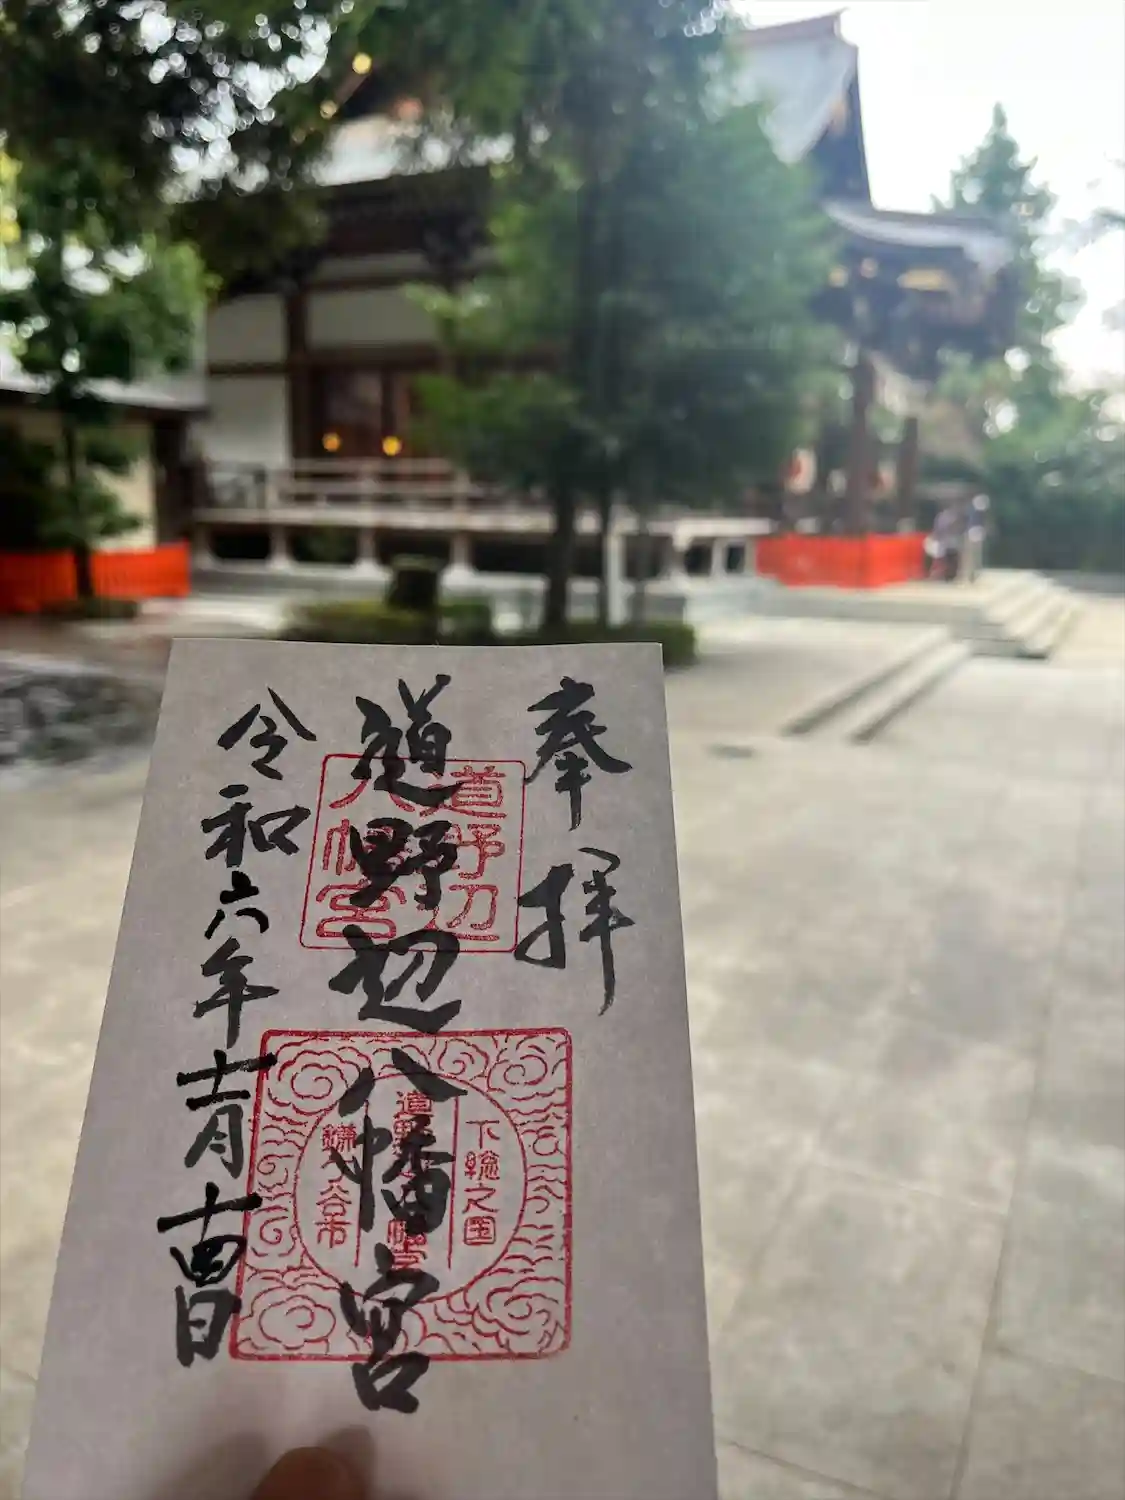 奉拝
道野辺八幡宮
令和六年十一月十四日
道野辺
八幡宮
下総之国
道野辺八幡宮
鎌ヶ谷市